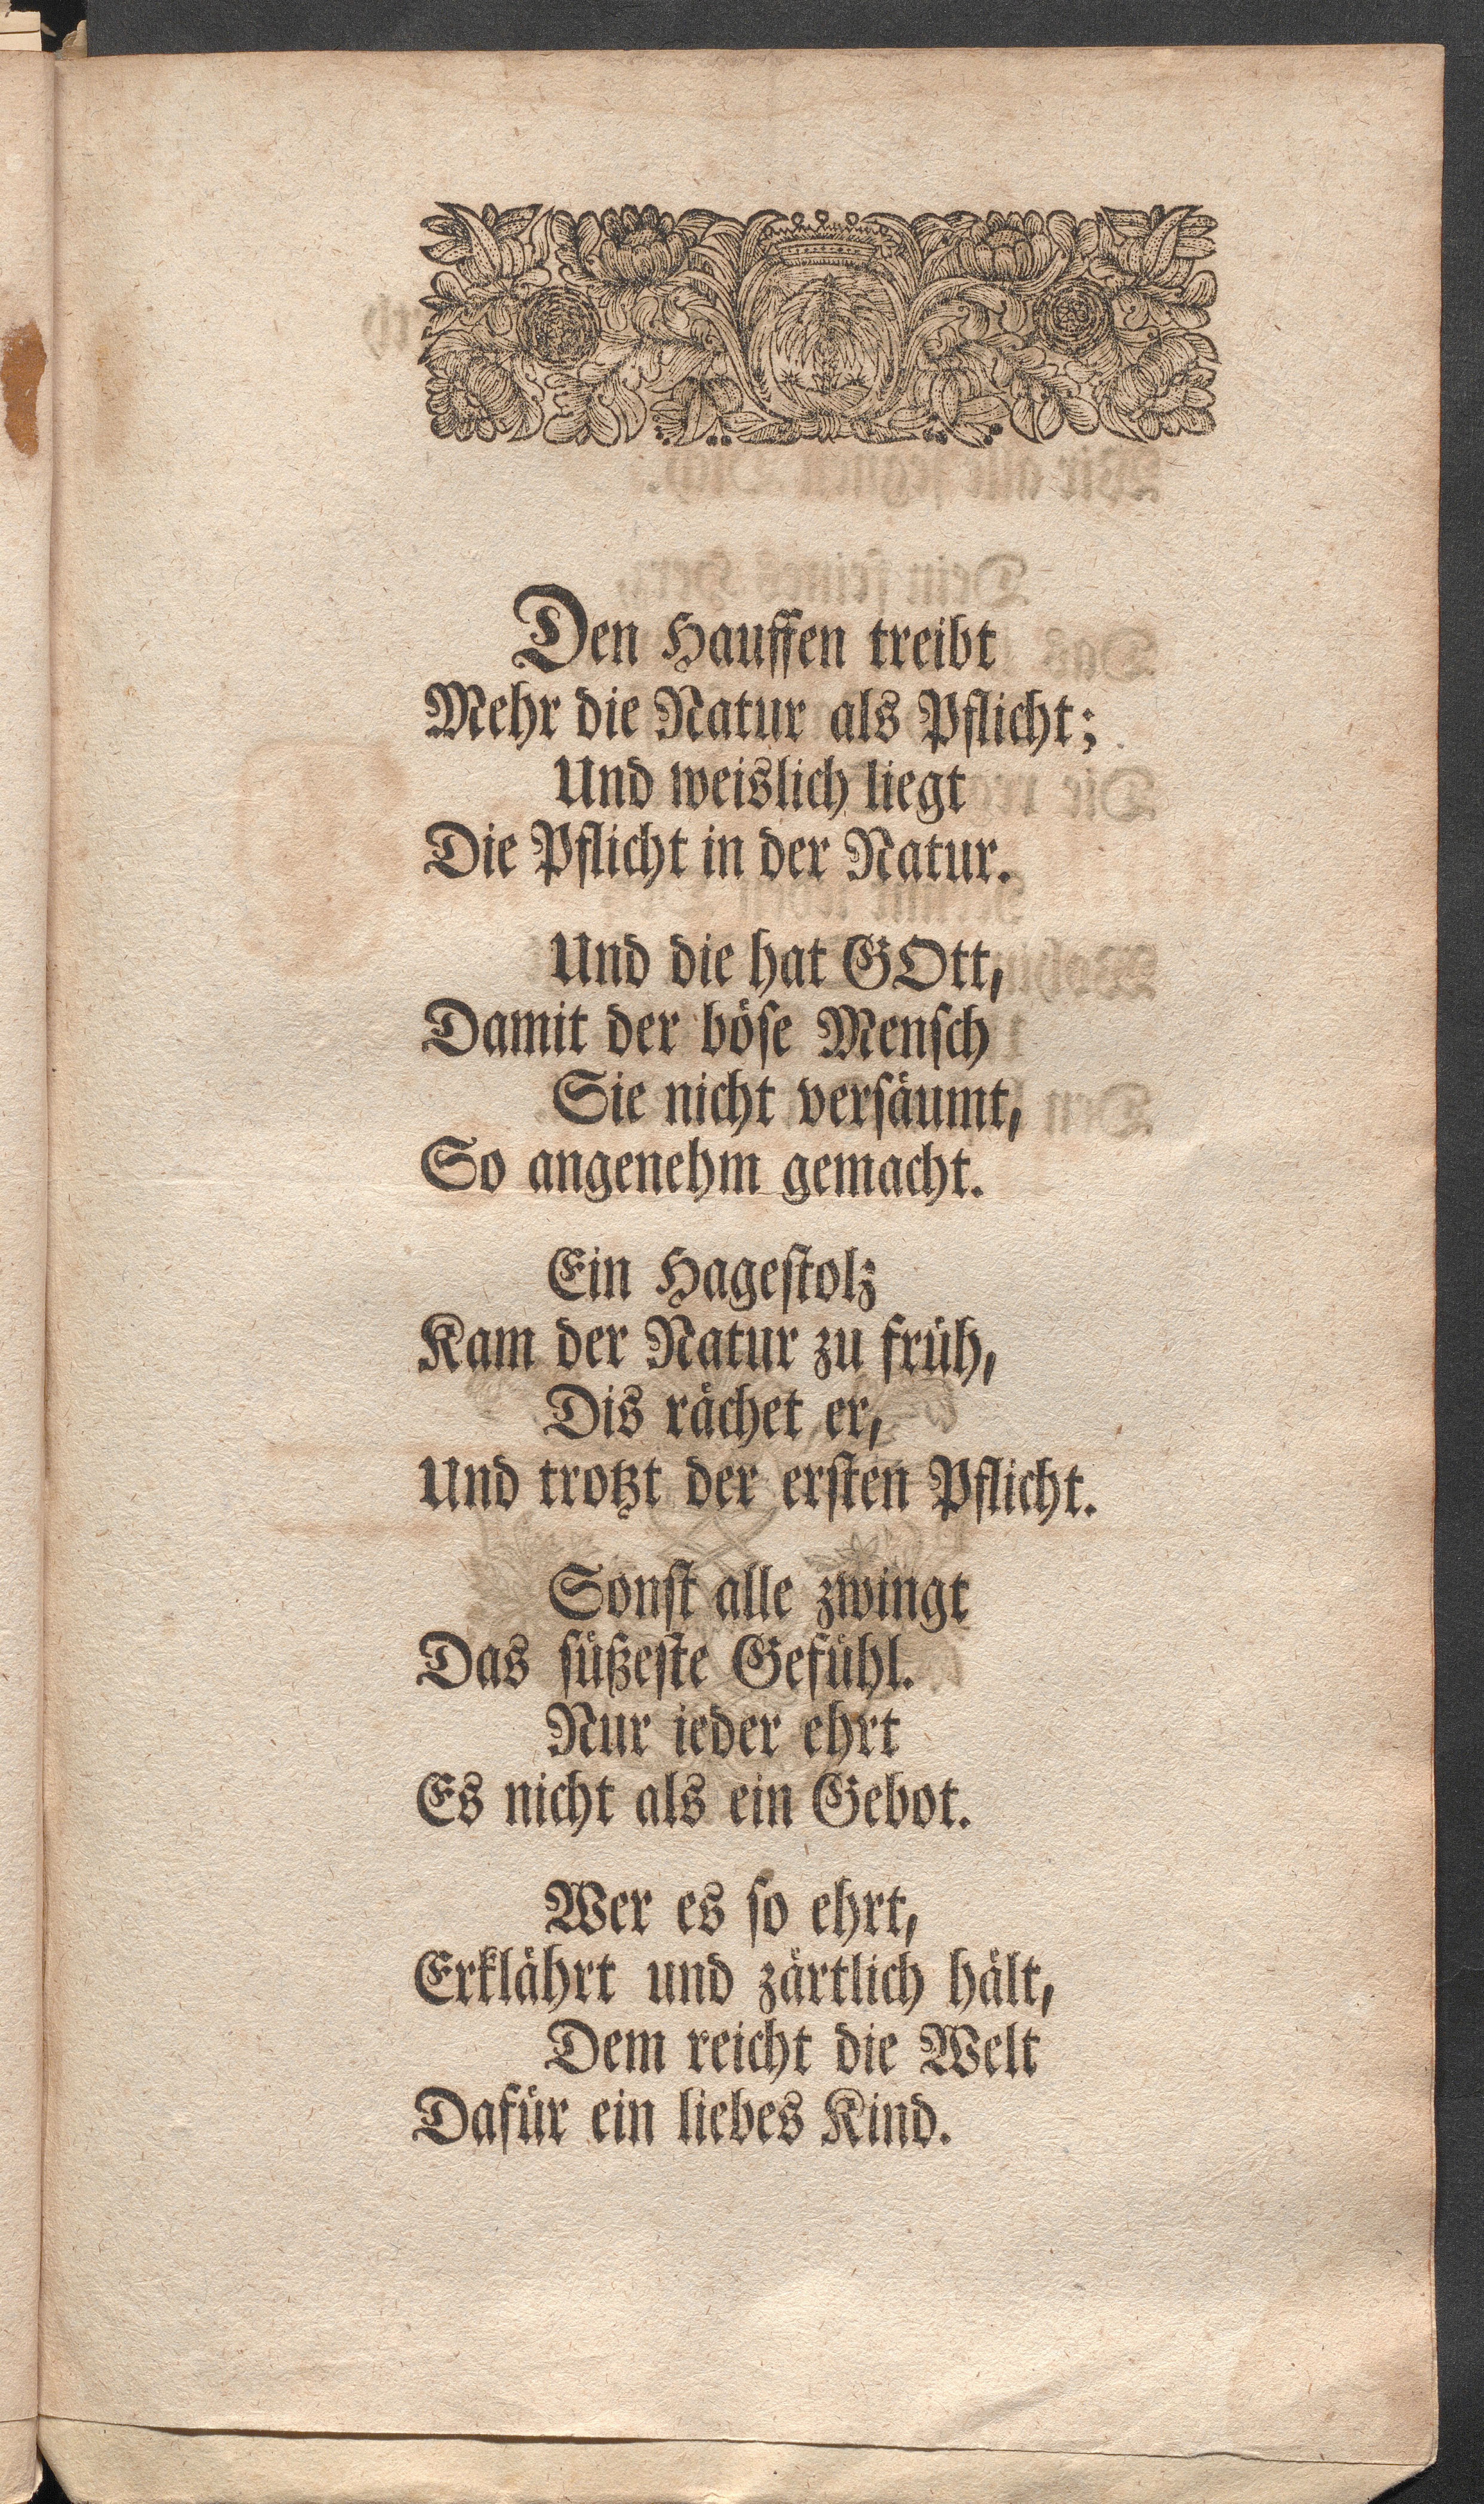 Den Hauffen treibt
Mehr die Natur als Pflicht;
Und weislich liegt
Die Pflicht in der Natur.
Und die hat GOtt,
Damit der böſe Menſch
Sie nicht verſäumt,
So angenehm gemacht.
Ein Hageſtolz
Kam der Natur zu früh,
Dis rächet er,
Und trotzt der erſten Pflicht.
Sonſt alle zwingt
Das ſüßeſte Gefühl.
Nur ieder ehrt
Es nicht als ein Gebot.
Wer es ſo ehrt,
Erklährt und zärtlich hält,
Dem reicht die Welt
Dafür ein liebes Kind.